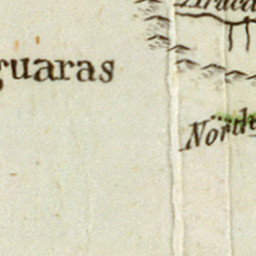 guaras
North